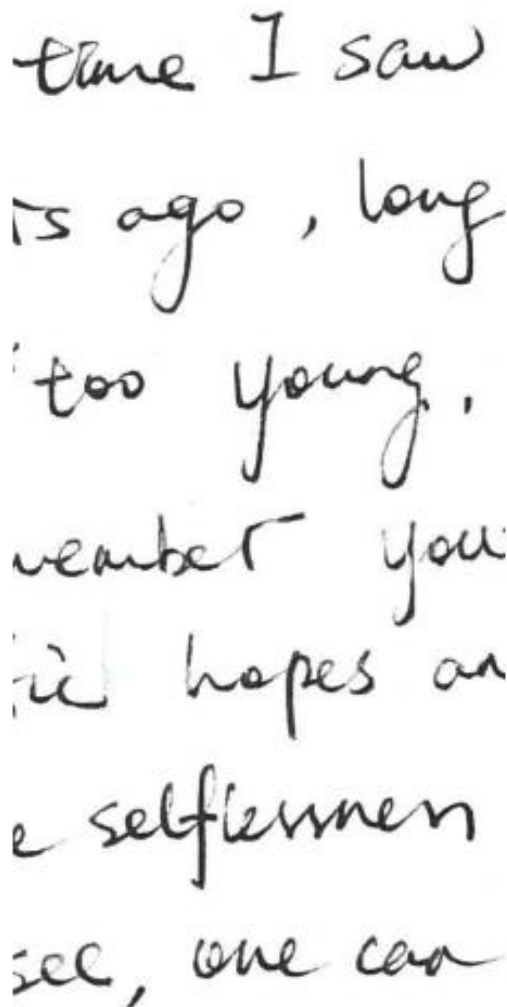 time I saw
rs ago, long
too young.
member you
tic hopes an
e selflessness
see, one can